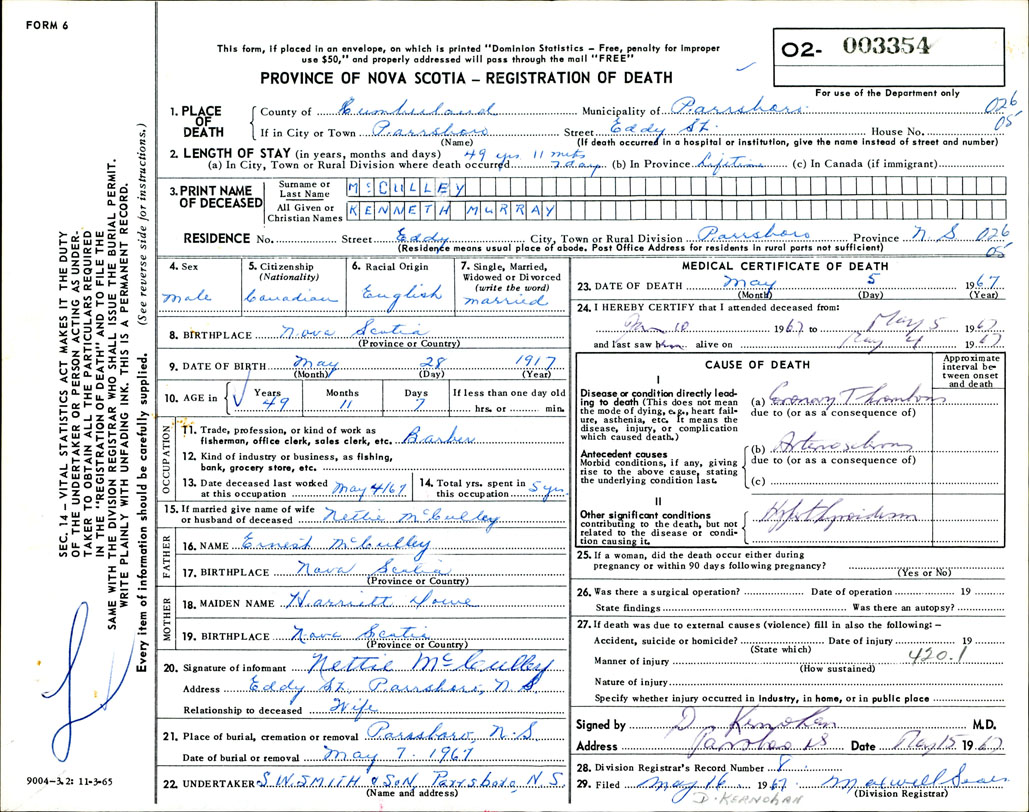 FORM 6
This form, if placed in an envelope, on which is printed "Dominion Statistics – Free, penalty for improper
use $50," and properly addressed will pass through the mail "FREE"
O2- 003354
PROVINCE OF NOVA SCOTIA – REGISTRATION OF DEATH
For use of the Department only
1. PLACE OF DEATH
County of Cumberland Municipality of Parrsboro 026
If in City or Town Parrsboro Street Eddy St. House No. 05
(Name) (If death occurred in a hospital or institution, give the name instead of street and number)
2. LENGTH OF STAY (in years, months and days) 49 yrs 11 mths
(a) In City, Town or Rural Division where death occurred 7 days (b) In Province Lifetime (c) In Canada (if immigrant)
3. PRINT NAME OF DECEASED
Surname or Last Name McCULLEY
All Given or Christian Names KENNETH MURRAY
RESIDENCE No. Street Eddy City, Town or Rural Division Parrsboro Province N.S 026
(Residence means usual place of abode. Post Office Address for residents in rural parts not sufficient) 05
4. Sex male
5. Citizenship (Nationality) Canadian
6. Racial Origin English
7. Single, Married, Widowed or Divorced (write the word) married
8. BIRTHPLACE Nova Scotia
(Province or Country)
9. DATE OF BIRTH May 28 1917
(Month) (Day) (Year)
10. AGE in Years Months Days If less than one day old
49 11 7 hrs. or min.
OCCUPATION
11. Trade, profession, or kind of work as
fisherman, office clerk, sales clerk, etc. Barber
12. Kind of industry or business, as fishing,
bank, grocery store, etc.
13. Date deceased last worked at this occupation May 4/67
14. Total yrs. spent in this occupation 5 yrs
15. If married give name of wife
or husband of deceased Nettie McCulley
FATHER
16. NAME Ernest McCulley
17. BIRTHPLACE Nova Scotia
(Province or Country)
MOTHER
18. MAIDEN NAME Harriett
19. BIRTHPLACE Nova Scotia
(Province or Country)
20. Signature of informant Nettie McCulley
Address Eddy St. Parrsboro, N S
Relationship to deceased Wife
21. Place of burial, cremation or removal Parrsboro, N.S
Date of burial or removal May 7. 1967
22. UNDERTAKER S.W. SMITH & SON, Parrsboro, N.S.
(Name and address)
MEDICAL CERTIFICATE OF DEATH
23. DATE OF DEATH May 5 1967
(Month) (Day) (Year)
24. I HEREBY CERTIFY that I attended deceased from:
Jan 10 1967 to May 5 1967
and last saw him alive on May 4 1967
CAUSE OF DEATH
Approximate interval between onset and death
I
Disease or condition directly leading to death (This does not mean the mode of dying, e.g., heart failure, asthenia, etc. It means the disease, injury, or complication which caused death.)
(a) Coronary Thrombosis
due to (or as a consequence of)
Antecedent causes
Morbid conditions, if any, giving rise to the above cause, stating the underlying condition last.
(b) Arteriosclerosis
due to (or as a consequence of)
(c)
II
Other significant conditions
contributing to the death, but not related to the disease or condition causing it.
Hypothyroidism
25. If a woman, did the death occur either during
pregnancy or within 90 days following pregnancy?
(Yes or No)
26. Was there a surgical operation? Date of operation 19
State findings Was there an autopsy?
27. If death was due to external causes (violence) fill in also the following: –
Accident, suicide or homicide? Date of injury 19
(State which)
Manner of injury 420.1
(How sustained)
Nature of injury
Specify whether injury occurred in industry, in home, or in public place
Signed by D. Kernohan M.D.
Address Parrsboro NS Date May 15 1967
28. Division Registrar's Record Number 8
29. Filed May 16 1967. Maxwell
(Division Registrar)
D. KEANOHAN
SEC. 14 – VITAL STATISTICS ACT MAKES IT THE DUTY
OF THE UNDERTAKER OR PERSON ACTING AS UNDER-
TAKER TO OBTAIN ALL THE PARTICULARS REQUIRED
IN THE "REGISTRATION OF DEATH" AND TO FILE THE
SAME WITH THE DIVISION REGISTRAR WHO SHALL ISSUE THE BURIAL PERMIT.
WRITE PLAINLY WITH UNFADING INK. THIS IS A PERMANENT RECORD.
Every item of information should be carefully supplied. (See reverse side for instructions.)
9004-3.2: 11-3-65